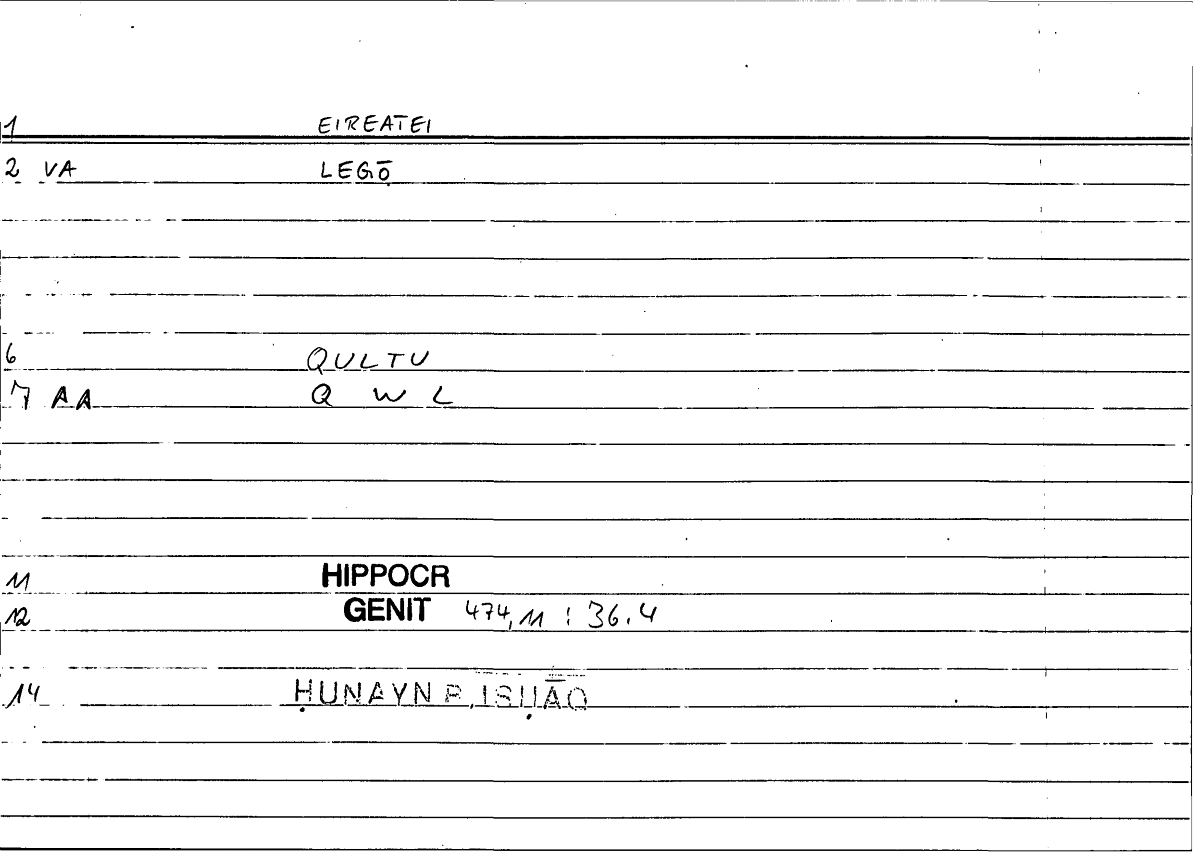 1 EIREATEI
2 VA LEGŌ
6 QULTU
7 AA Q W L
11 HIPPOCR
12 GENIT 474,11 : 36.4
14 ḤUNAYN B. ISḤĀQ